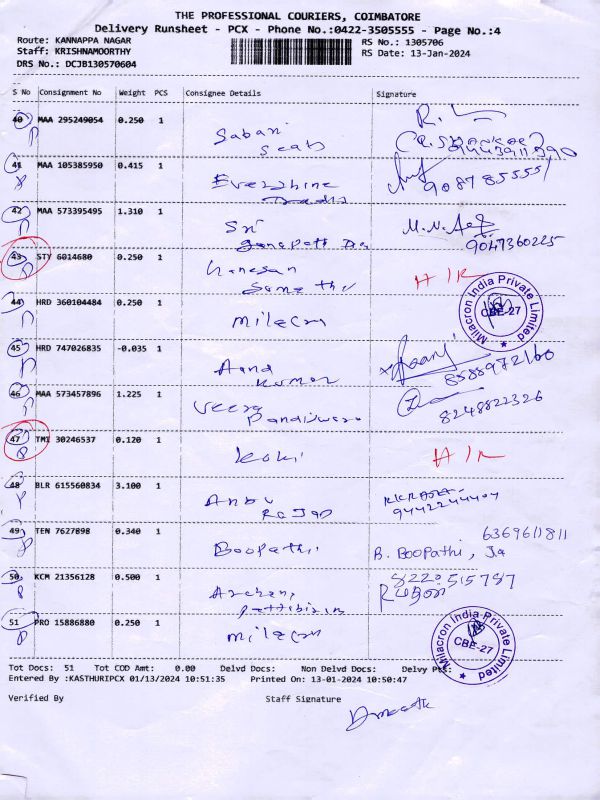 THE PROFESSIONAL COURIERS, COIMBATORE
Delivery Runsheet - PCX - Phone No.:0422-3505555 - Page No.:4
Route: KANNAPPA NAGAR
Staff: KRISHNAMOORTHY
DRS No.: DCJB130570604
RS No.: 1305706
RS Date: 13-Jan-2024
S No Consignment No Weight PCS Consignee Details Signature
40 MAA 295249054 0.250 1 Sabari
41 MAA 105385950 0.415 1 Evershine 9087855551
42 MAA 573395495 1.310 1 Sri M.N.
ganapati 9047360225
43 STY 6014680 0.250 1 Ganesan H/R
44 HRD 360104484 0.250 1 milacrn
Milacron India Private Limited
CBE-27
45 HRD 747026835 -0.035 1 Anand
Kumar 8589972160
46 MAA 573457896 1.225 1 Veera
8248822326
47 TMI 30246537 0.120 1 Koki H/R
48 BLR 615560834 3.100 1 Anbu
Rajan 9442244404
49 TEN 7627898 0.340 1 Boopathi 6369611811
B. BOOPATHI,
50 KCM 21356128 0.500 1 8220515787
51 PRO 15886880 0.250 1 milacrn
Milacron India Private Limited
CBE-27
Tot Docs: 51 Tot COD Amt: 0.00 Delvd Docs: Non Delvd Docs: Delvy Pts:
Entered By :KASTHURIPCX 01/13/2024 10:51:35 Printed On: 13-01-2024 10:50:47
Verified By Staff Signature